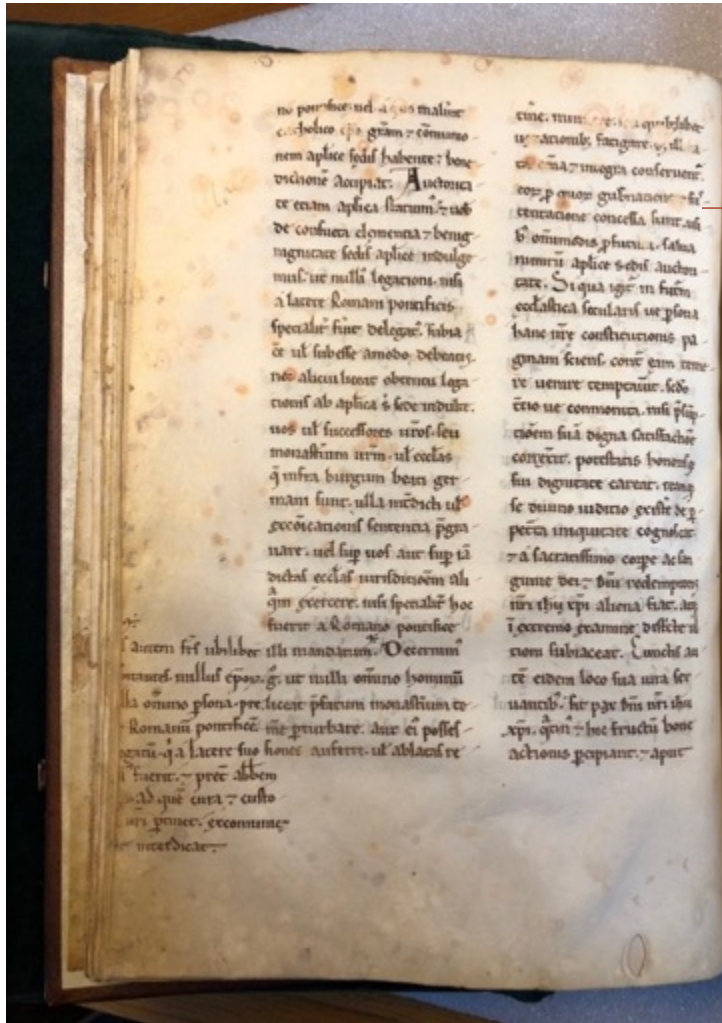 catholico ep̄o grām ⁊ cōmunio
nem aplice sedis habente bene
dictionē accipiat. Auctorita
te etiam aplica statuim᷒ ⁊ uob
de consueta clementia ⁊ benig
nignitate sedis aplice indulge
mus. ut nulli legationi. nisi
a latere Romani pontificis
specialit̄ fūit delegat. subia
cē ul subesse amodo debeatis.
nec alicui liceat obtentu lega
tionis ab aplica s̄ sede indulte.
uos ul successores ur̄os. seu
monastium ur̄m. ul ecclas
q̄ infra burgum beati ger
mani sunt. ulla int̄dicti ul
excōicationis sententia p̄gra
uare. uel sup uos aut sup iā
dictas ecclas iurisdictiōem ali
q̄m exercere. nisi specialit̄ hoc
fuerit a Romano pontifice
illi mandatum. Decernim᷒
g̊. ut nulli omīno hominū
liceat p̄fatum monastium te
me pturbare. aut ei posses
siones auferre. ul ablatas re
autem fr̄s ubilibet
nullus ep̄oꝝ.
omīno psona. pre
Romanū pontificē.
q̇ a latere suo
fuerit. ⁊ pret̄ abbem
ad quē cura ⁊ custo
ptinet. excommuni
interdicat.
uexationib; fatigare.
om̄ia ⁊ integra conseruent̄.
eoꝝ p quoꝝ gubnatione ⁊ sus
tentatione concessa sunt. usi
b᷒ omnimodis pfutura. salua
nimirū aplice sedis auctori
tate. Si qua igit̄ in futm̄
ecclastica secularis ue psona
hanc nr̄e constitutionis pa
ginam sciens. cont̄ eam teme
re uenire temptauit. scdo
t̄tio ue conmonita. nisi p̄sūp
tiōem suā digna satisfactiōe
correxit. potestatis honorisq̄
sui dignitate careat. reamq̄
se diuino iuditio existe de p
petta iniquitate cognoscat.
⁊ a sacratissimo corpe ac san
guine dei ⁊ dn̄i redemptoris
nr̄i ihu xpi aliena fiat. atq̄
ī extremo examine districte ul
tioni subiaceat. Cunctis au
tē eidem loco sua iura ser
uantib᷒. sit pax dn̄i nr̄i ihu
xpi. q̄tin᷒ ⁊ hic fructū bone
actionis pcipiant. ⁊ aput